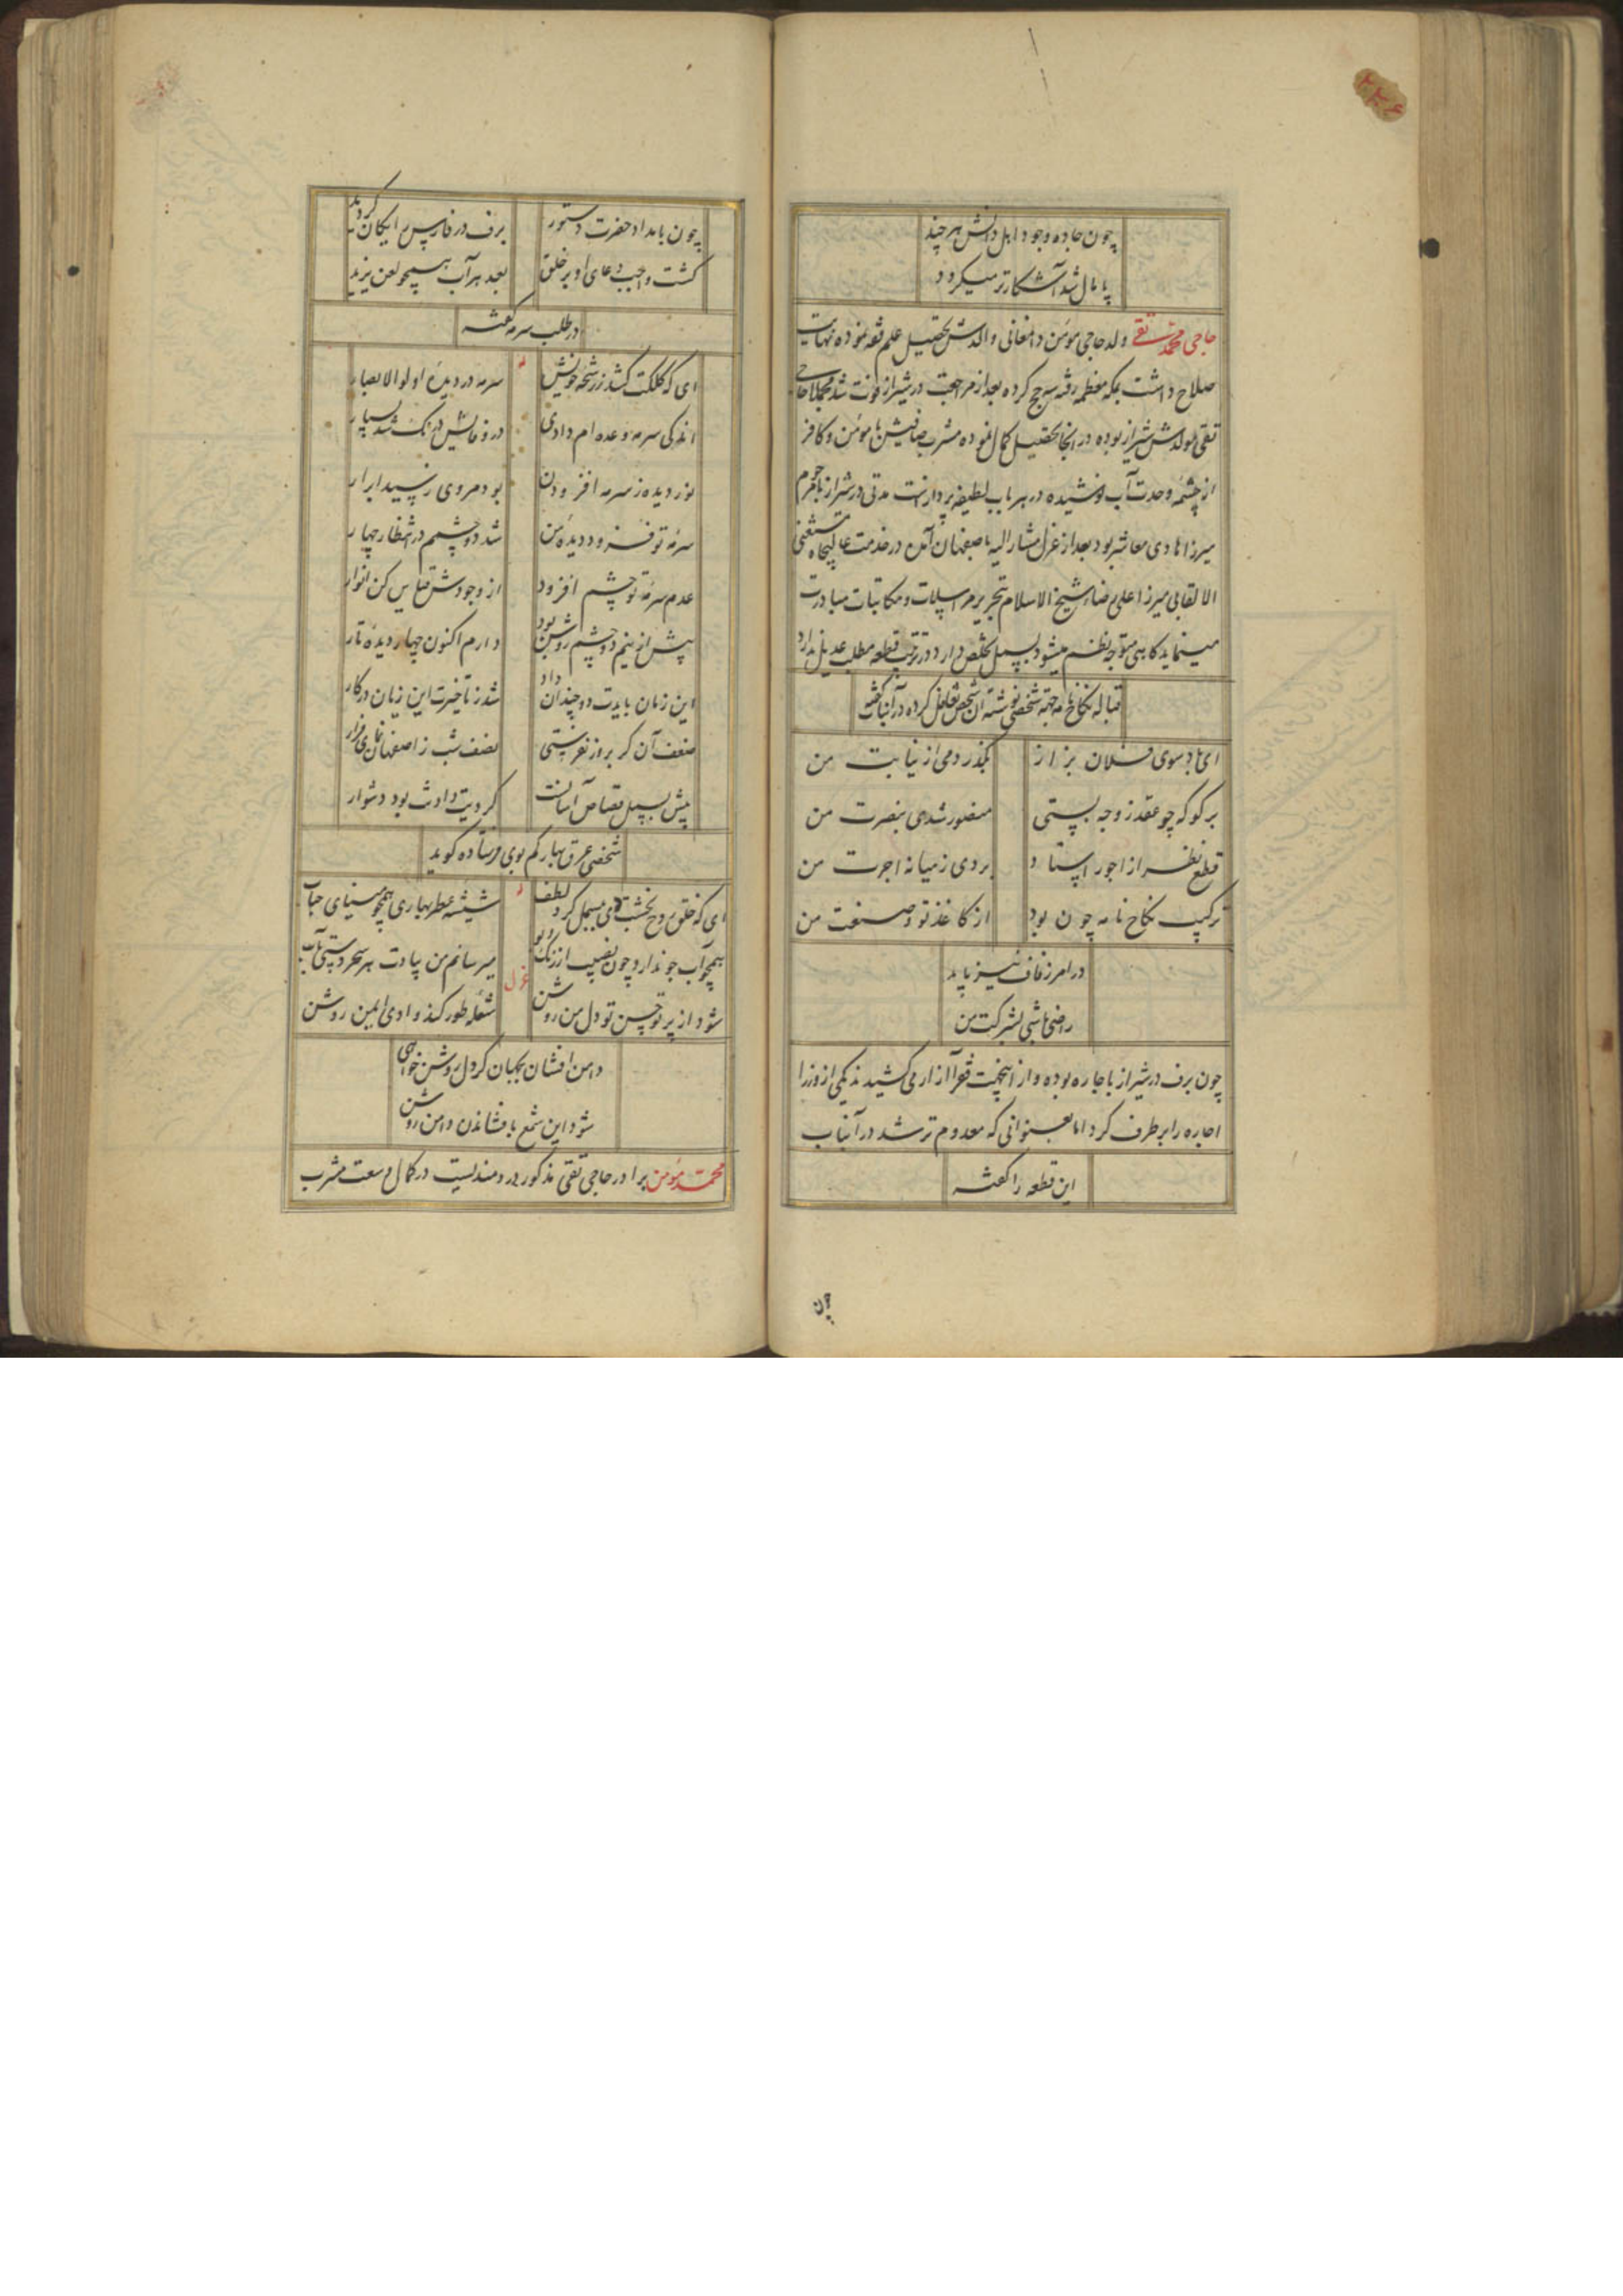 ۲۲۶
چون جاده وجود اهل دانش هر چند
پامال شد آشکارتر میکردد
حاجی محمد تقی ولد حاجی مومن دامغانی والدش تحصیل علم فقه نموده نهایت
صلاح داشت بمکه معظمه رفته حج کرده بعد از مراجعت در شیراز فوت شد مجملا حاجی
تقی مولدش شیراز بوده در آنجا تحصیل کمال نموده مشرب صافیش با مومن و کافر
از چشمه وحدت آب نوشیده در هر باب لطیفه پرداز است مدتی در شیراز با مرحوم
میرزا هادی معاشر بود بعد از عزل مشار الیه باصفهان آمده در خدمت عالیجاه مستغنی
الالقابی میرزا علی رضا شیخ الاسلام بتحریر مراسلات و مکاتبات مبادرت
مینماید کاهی متوجه نظم میشود بسمل تخلص دارد در ترتیب قطعه مطلب عدیل ندارد
قباله نکاح نامه جهة شخصی نوشته آن شخص تغافل کرده در آنباب گفته
ای باد سوی فلان بزاز
بگذر دمی از نیابت من
برکو که چو عقد زوجه بستی
منصور شدی بنصرت من
قطع نظر از اجور استاد
بردی ز میانه اجرت من
ترکیب نکاح نامه چون بود
از کاغذ تو و صنعت من
در امر زفاف نیز باید
راضی باشی بشرکت من
چون برف در شیراز باجاره بوده و از اینجهت فقرا آزار می کشیدند یکی از وزرا
اجاره را برطرف کرد اما بعنوانی که معدوم تر شد در آنباب
این قطعه را گفته
چون
چون بامداد حضرت دستور
برف در فارس رایکان کردید
کشت واجب دعای او بر خلق
بعد هر آب همچو لعن یزید
در طلب سرمه گفته
ای که کلکت کشد ز رشحه خویش
سرمه در دیده اولو الابصار
اندکی سرمه وعده ام دادی
در وفایش درنگ شد بسیار
نور دیده ز سرمه افزودن
بود مروی ز سید ابرار
سرمه تو فزود دیده من
شد دو چشمم در انتظار چهار
عدم سرمه تو چشم افزود
از وجودش قیاس کن انوار
پیش ازینم دو چشم روشن بود
دارم اکنون چهار دیده تار
این زمان بایدت دو چندان داد
شد ز تاخیرت این زیان در کار
ضعف آن کر برار نفرستی
نصف شب ز اصفهان نمای فرار
پیش بسمل قصاص آسانست
کر دیت دادنت بود دشوار
شخصی عرق بهار کم بوی فرستاده کوید
ای که خلق روح بخشت یاد بسمل کرد لطف
شیشه عطر بهاری همچو مینای حباب
همچو آب جو ندارد چون نصیب از رنک و بو
میرسانم من بیادت هر سحر دستی بآب
غزل
شود از پرتو حسن تو دل من روشن
شعله طور کند وادی ایمن روشن
دامن افشان بجهان کر دل روشن خواهی
شود این شمع بافشاندن دامن روشن
محمد مومن برادر حاجی تقی مذکور دردمندیست در کمال وسعت مشرب